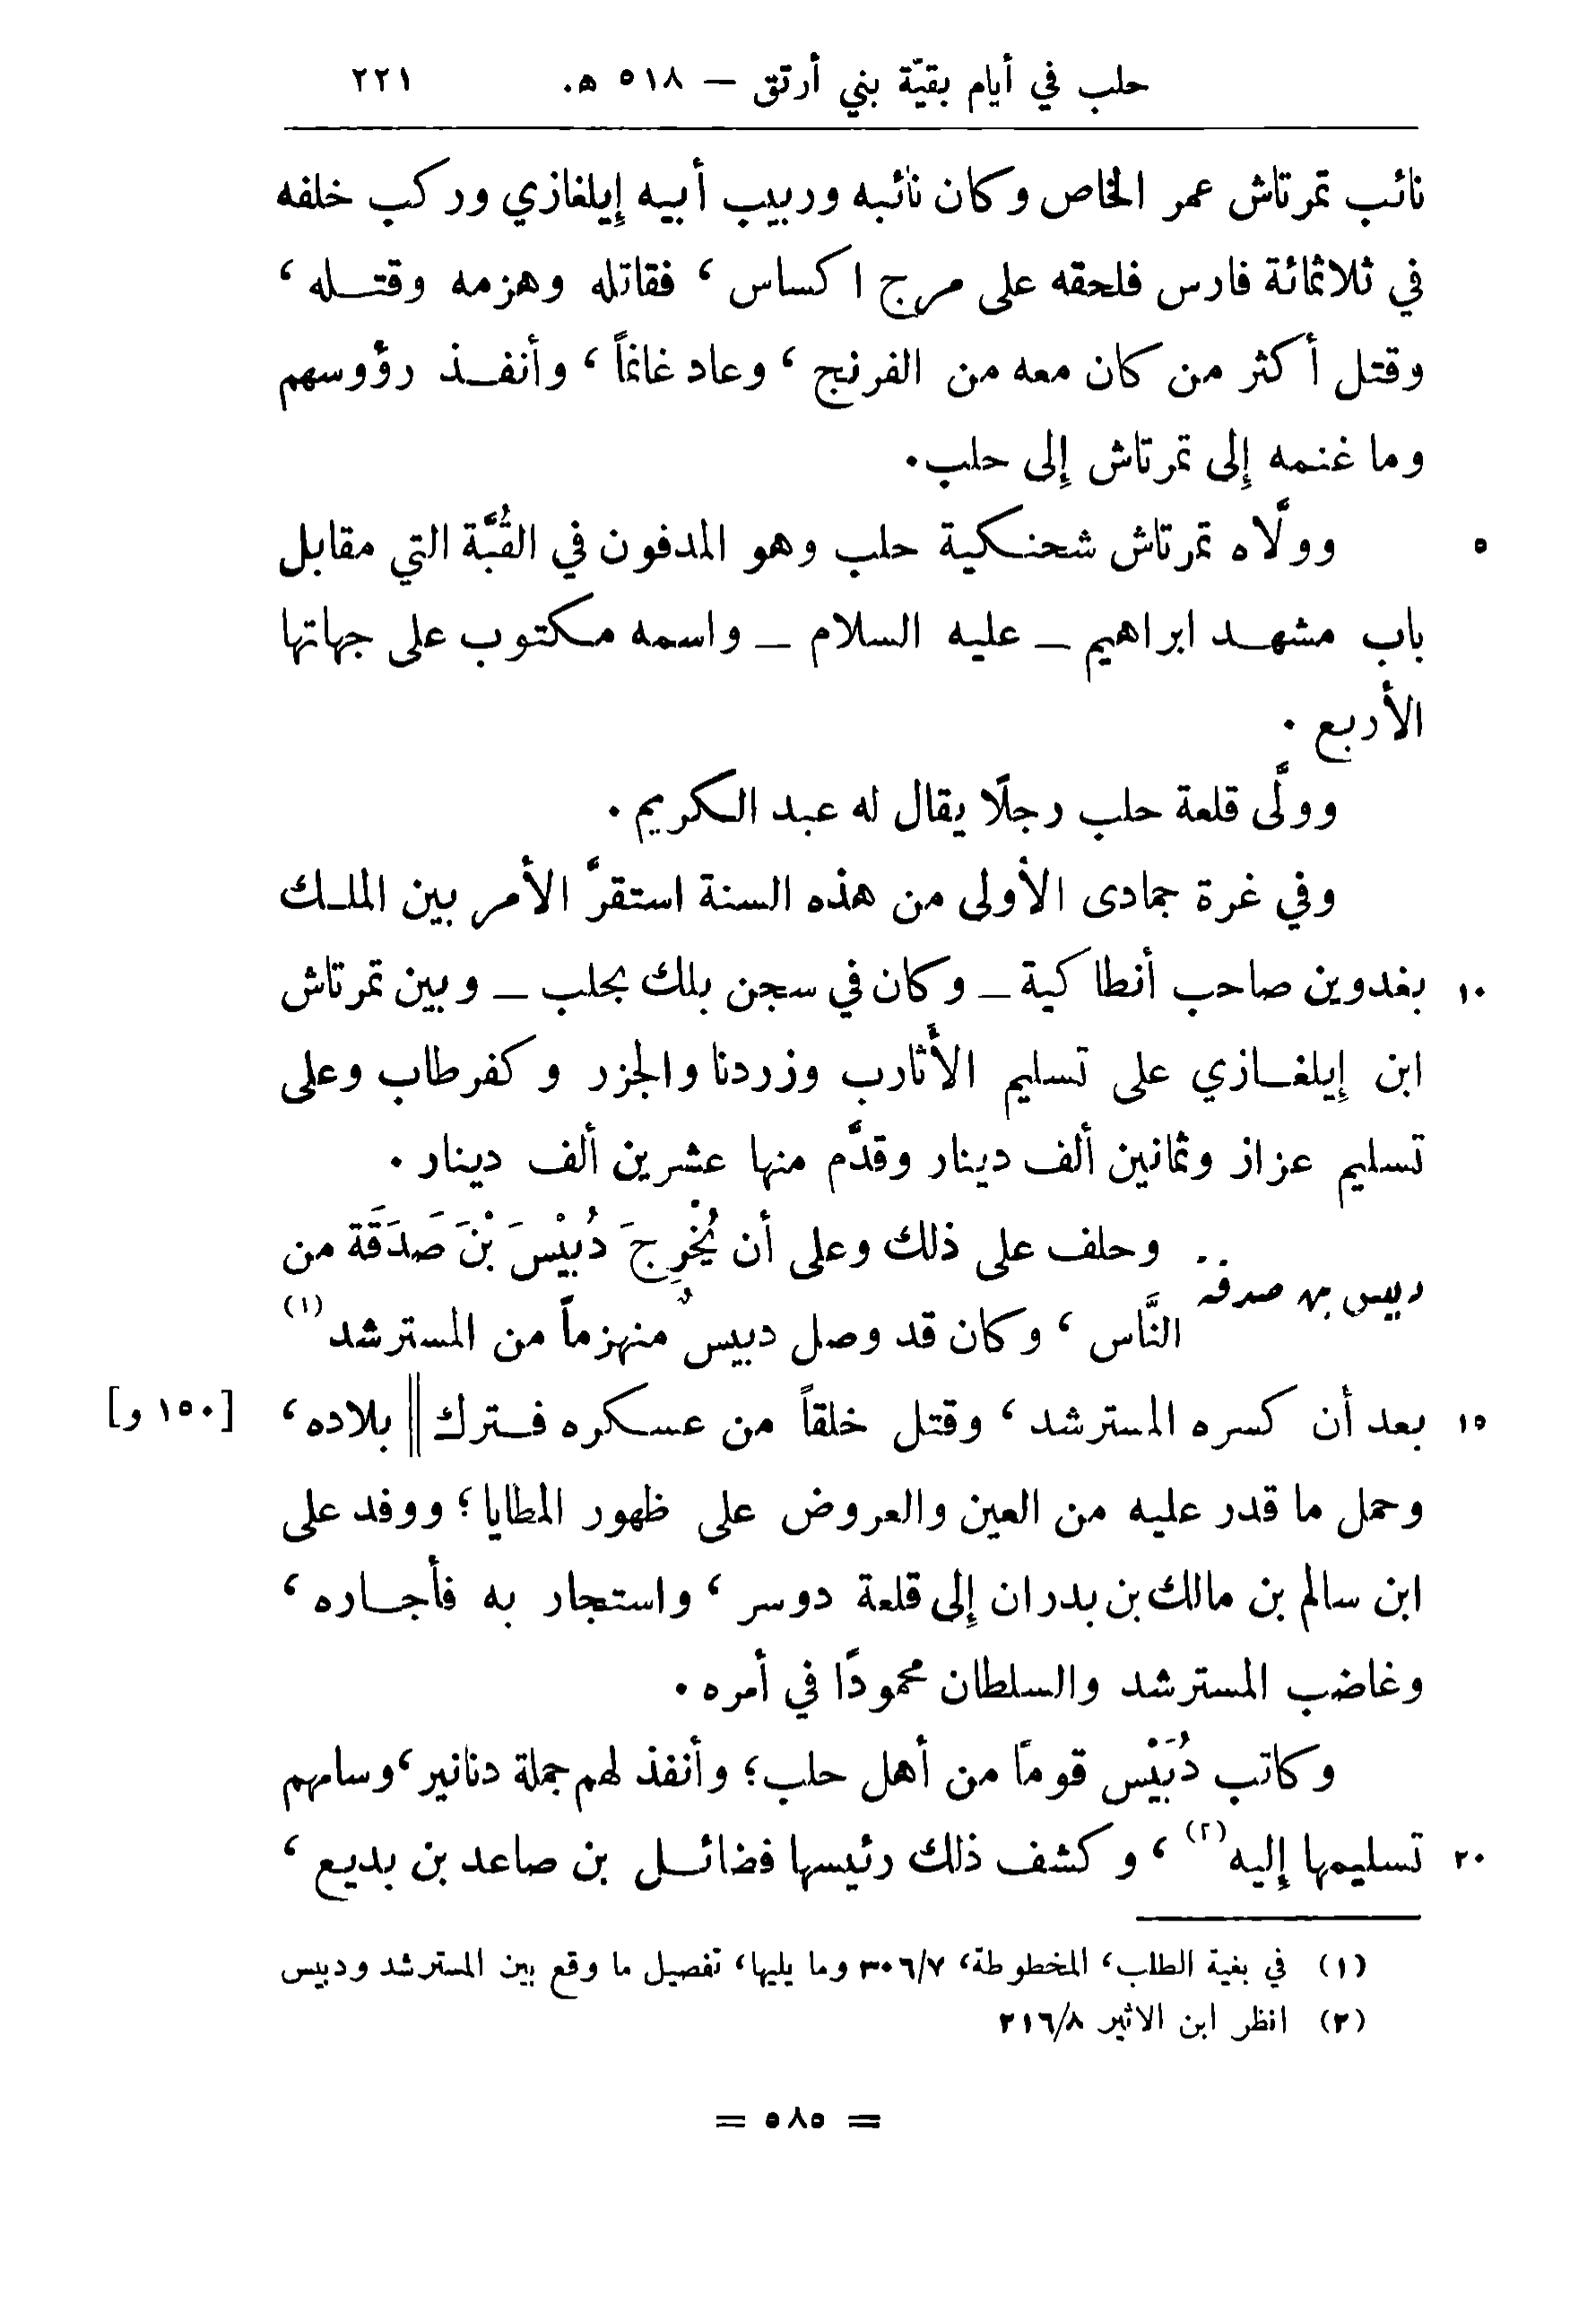 حلب في أيام بقيّة بني أرتق – ٥١٨ ه. ٢٢١
نائب تمرتاش عمر الخاص وكان نائبه وربيب أبيه إيلغازي وركب خلفه
في ثلاثمائة فارس فلحقه على مرج اكساس ، فقاتله وهزمه وقتله ،
وقتل أكثر من كان معه من الفرنج ، وعاد غانماً ، وأنفذ رؤوسهم
وما غنمه إلى تمرتاش إلى حلب.
٥ وولَّاه تمرتاش شحنكية حلب وهو المدفون في القُبَّة التي مقابل
باب مشهد ابراهيم – عليه السلام – واسمه مكتوب على جهاتها
الأربع .
وولَّى قلعة حلب رجلًا يقال له عبد الكريم .
وفي غرة جمادى الأولى من هذه السنة استقرَّ الأمر بين الملك
١٠ بغدوين صاحب أنطاكية – وكان في سجن بلك بحلب – وبين تمرتاش
ابن إيلغازي على تسليم الأثارب وزردنا والجزر وكفرطاب وعلى
تسليم عزاز وثمانين ألف دينار وقدَّم منها عشرين ألف دينار .
وحلف على ذلك وعلى أن يُخْرِجَ دُبَيْسَ بْنَ صَدَقَة من
دبيس بن صدقة
النَّاس ، وكان قد وصل دبيسٌ منهزماً من المسترشد (١)
١٥ بعد أن كسره المسترشد ، وقتل خلقاً من عسكره فترك || بلاده ، [١٥٠ و]
وحمل ما قدر عليه من العين والعروض على ظهور المطايا ؛ ووفد على
ابن سالم بن مالك بن بدران إلى قلعة دوسر ، واستجار به فأجاره ،
وغاضب المسترشد والسلطان محمودًا في أمره .
وكاتب دُبَيْس قومًا من أهل حلب ؛ وأنفذ لهم جملة دنانير ، وسامهم
٢٠ تسليمها إليه (٢) ، وكشف ذلك رئيسها فضائل بن صاعد بن بديع ،
(١) في بغية الطلب ، المخطوطة ، ٣٠٦/٧ وما يليها ، تفصيل ما وقع بين المسترشد ودبيس
(٢) انظر ابن الاثير ٢١٦/٨
= ٥٨٥ =